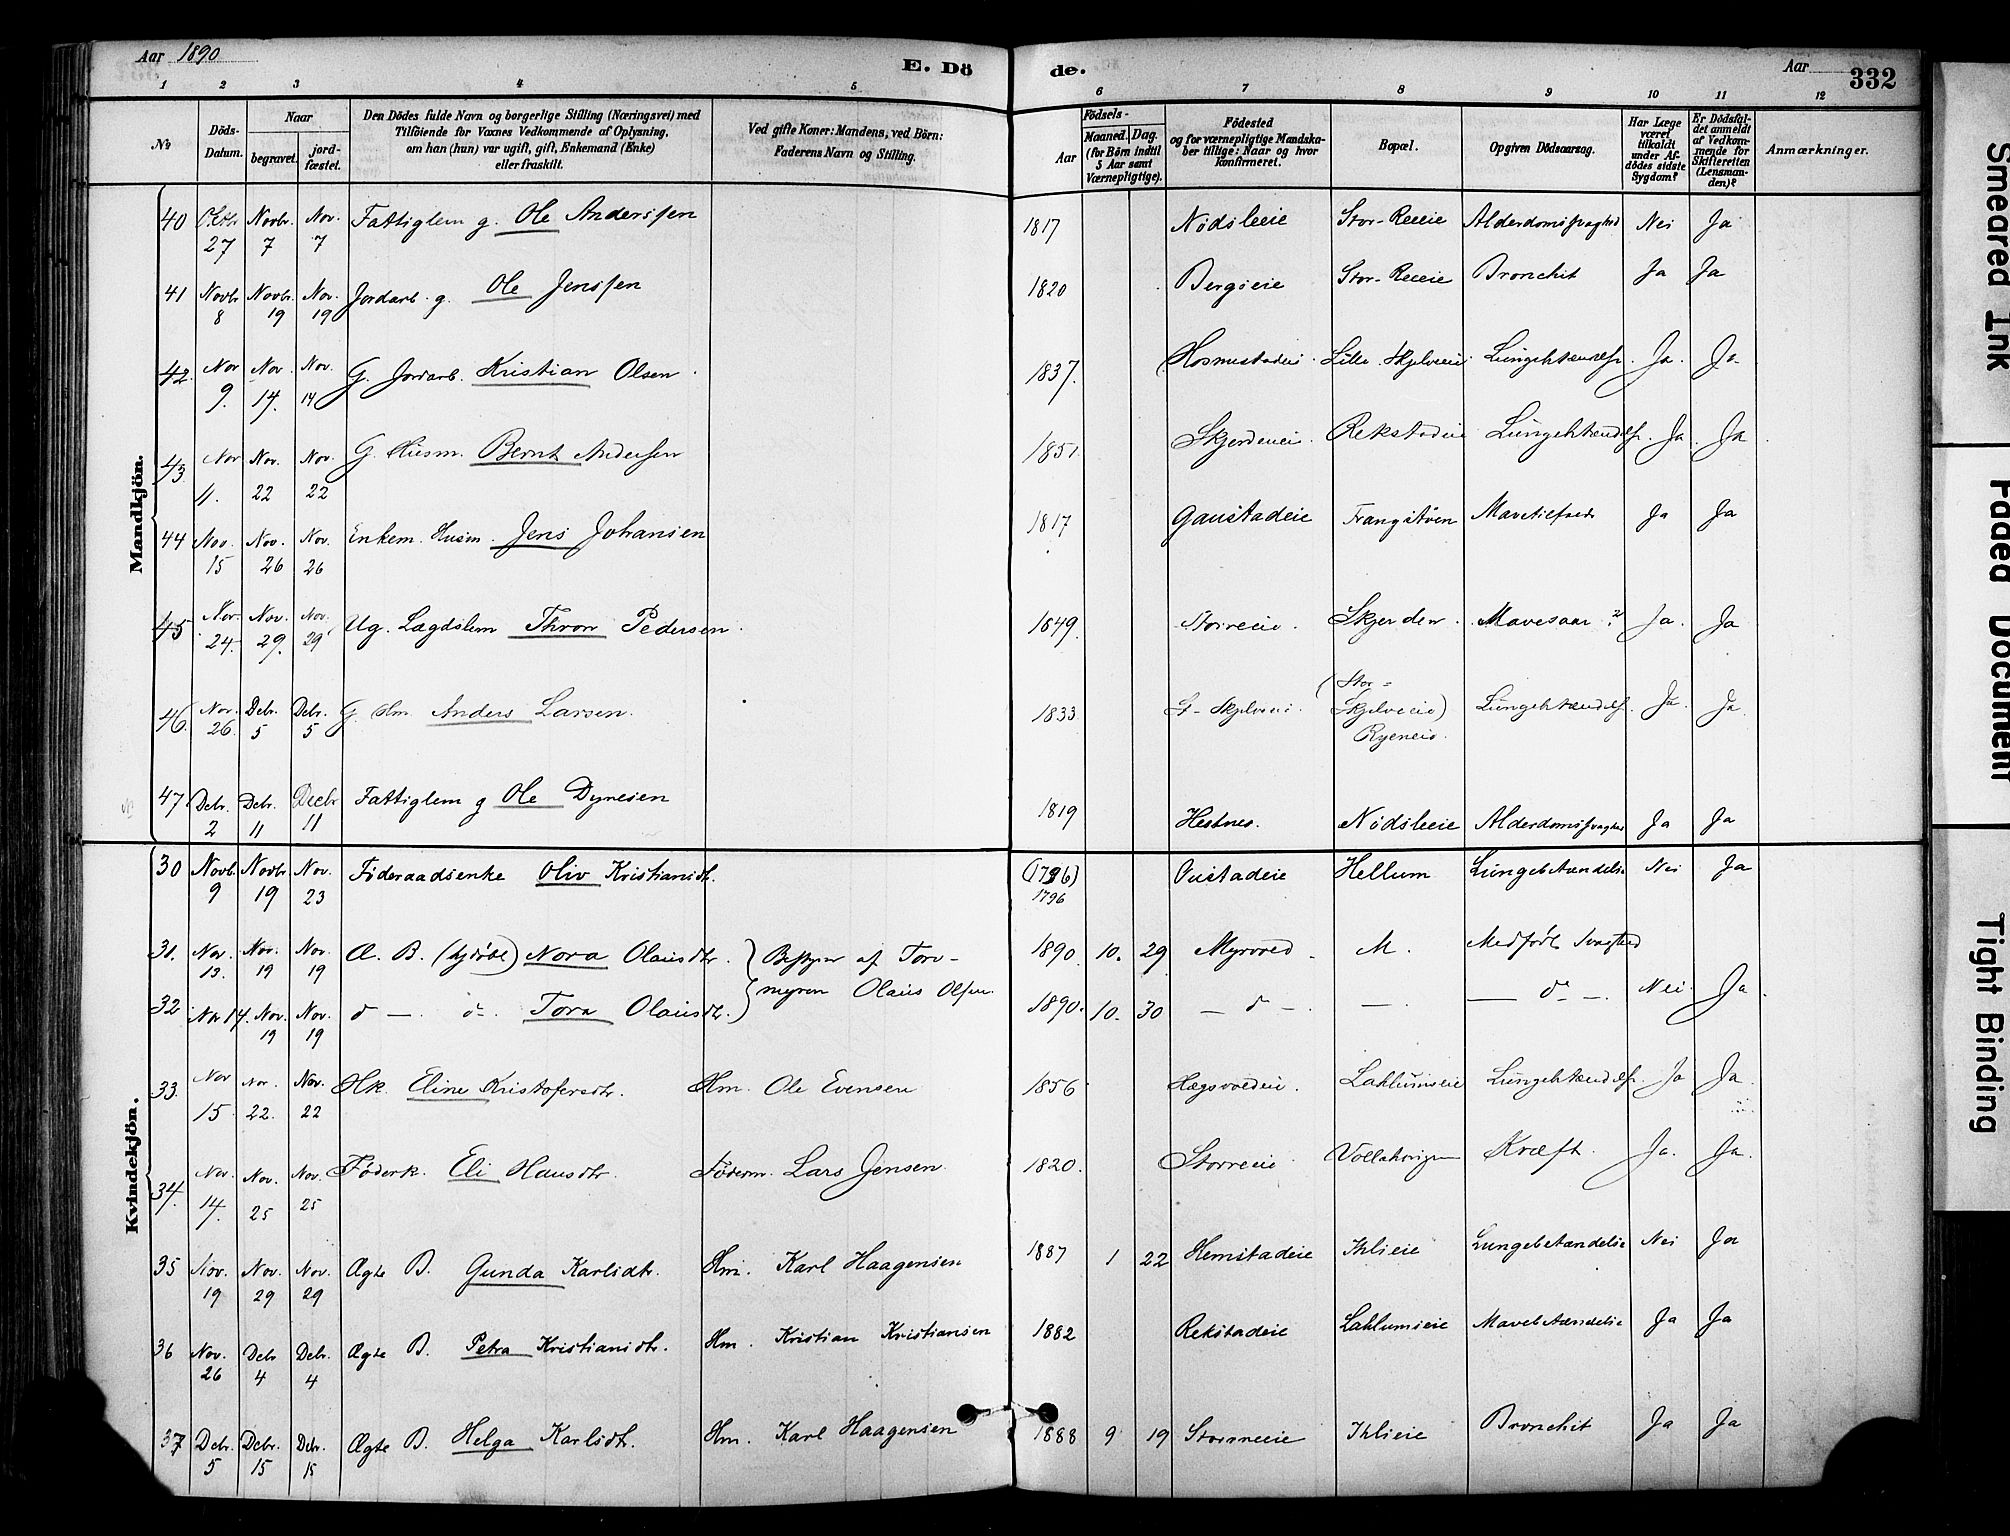 Aar 1890
E. Dö de.
Aar 332
1 2 3 4 5 6 7 8 9 10 11 12
No
Döds-Datum.
Naar
begravet.
jord-fæstet.
Den Dödes fulde Navn og borgerlige Stilling (Næringsvei) med
Tilföiende for Voxnes Vedkommende af Oplysning,
om han (hun) var ugift, gift, Enkemand (Enke)
eller fraskilt.
Ved gifte Koner: Mandens, ved Börn:
Faderens Navn og Stilling.
Födsels-
Aar
Maaned. Dag.
(for Börn indtil
5 Aar samt
Værnepligtige).
Födested
og for værnepligtige Mandska-
ber tillige: Naar og hvor
konfirmeret.
Bopæl.
Opgiven Dödsaarsag.
Har Læge
været
tilkaldt
under Af-
dödes sidste
Sygdom?
Er Dödsfal-
det anmeldt
af Vedkom-
mende for
Skifteretten
(Lensman-
den)?
Anmærkninger.
Mandkjön.
40 Oktr 27 Novbr. 7 Nov. 7 Fattiglem g. Ole Anderssen 1817 Nödsleeie Stor-Reeeie Alderdomssvaghed Nei Ja
41 Novbr 8 Novbr. 19 Nov. 19 Jordarb. g. Ole Jenssen 1820 Bergseie Stor-Reeeie Bronchit Ja Ja
42. Nov 9. Nov. 14. Nov. 14 G. Jordarb. Kristian Olsen 1837. Lille Skjelveeie Ja. Ja
43. Nov 11. Nov. 22 Nov. 22 G. Husm. Bernt Andersen 1851 Skjerdeneie. Rekstadeie Ja. Ja
44 Nov. 15 Nov. 26 Nov. 26 Enkem. Husm. Jens Johansen 1817 Gaustadeie Ja Ja
45 Nov. 24. Nov. 29. Nov. 29 Ug. Lægdslem Thron Pedersen 1849. Storreeie Skjerden Mavesaar? Ja. Ja
46. Nov. 26. Debr. 5 Debr. 5 G. Hm. Anders Larsen. 1833 St-Skjelveeie. (Stor-
Skjelveeie)
Ryeneie. Ja. Ja.
47 Debr. 2 Debr. 11 Decbr 11 Fattiglem g Ole Dynesen 1819 Hestnes. Nödsleeie Alderdomssvaghed Ja Ja
Kvindekjön.
30 Novb. 9 Novbr. 19 Nov. 23 Föderaadsenke Oliv Kristiansdt. (1736)
1796 Hellum Lungebetændelse Nei Ja
31. Nov. 13. Nov. 19 Nov. 19 Æ. B. (hjdöbt) Nora Olausdtr. Bestyrer af Torv-
myren Olaus Olsen 1890 10. 29 Myrvold M. Medfödt Svaghed
32 Nov 14. Nov. 19 Nov. 19 do — do. Tora Olausdtr. 1890. 10. 30 — do —. —. — do —. Nei. Ja.
33. Nov 15 Nov. 22. Nov. 22 Hk. Eline Kristofersdtr. Hm. Ole Evensen 1856 Laklumseie Ja Ja
34. Nov. 14. Nov. 25 Nov. 25 Föderk. Eli Hansdtr. Föderm. Lars Jensen 1820. Storreeie Kræft. Ja. Ja.
35 Nov. 19 Nov. 29 Nov. 29 Ægte B. Gunda Karlsdtr. Hm. Karl Haagensen 1887 1 22 Hemstadeie Ihlieie Lungebetændelse Nei Ja
36 Nov. 26 Debr 4 Debr. 4 Ægte B. Petra Kristiansdtr. Hm. Kristian Kristiansen 1882 Rekstadeie Laklumseie Mavebetændelse Ja Ja
37 Debr. 5 Debr. 15 Debr. 15 Ægte B. Helga Karlsdtr. Hm. Karl Haagensen 1888 9 19 Ihlieie Bronchit Ja Ja
Smeared Ink
Faded Document
Tight Binding